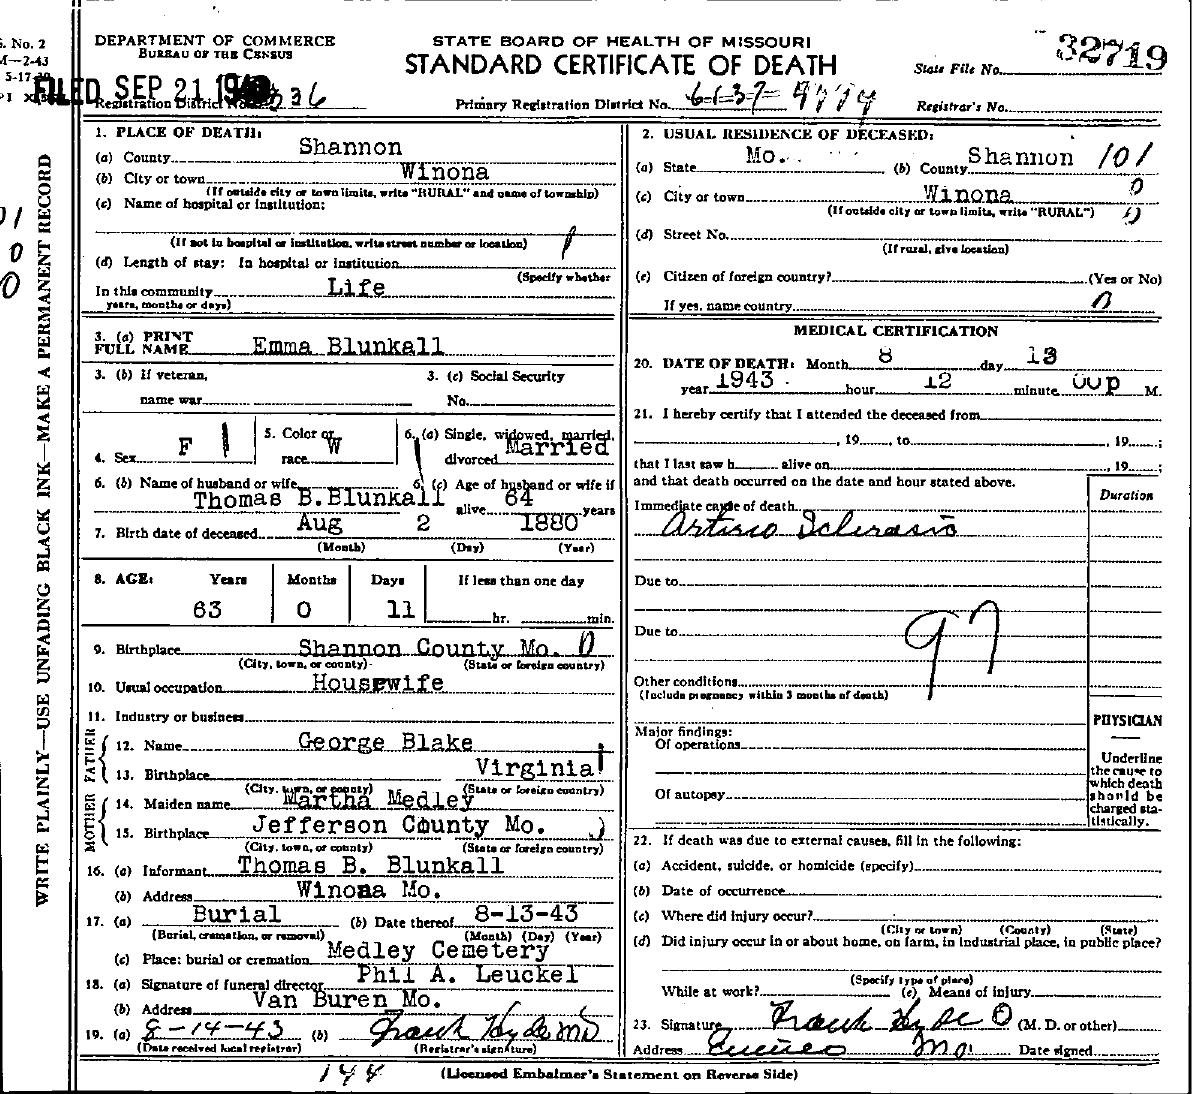 S. No. 2
M—2-43
5-17-39
DEPARTMENT OF COMMERCE
BUREAU OF THE CENSUS
STATE BOARD OF HEALTH OF MISSOURI
STANDARD CERTIFICATE OF DEATH
State File No. 32719
FILED SEP 21 19
Registration District No. 336
Primary Registration District No. 6137
Registrar's No.
WRITE PLAINLY—USE UNFADING BLACK INK—MAKE A PERMANENT RECORD
01
0
0
1. PLACE OF DEATH:
(a) County Shannon
(b) City or town Winona
(If outside city or town limits, write "RURAL" and name of township)
(c) Name of hospital or institution:
(If not in hospital or institution, write street number or location)
(d) Length of stay: In hospital or institution
(Specify whether
In this community Life
years, months or days)
2. USUAL RESIDENCE OF DECEASED:
(a) State Mo. (b) County Shannon 101
(c) City or town Winona 0
(If outside city or town limits, write "RURAL") 0
(d) Street No.
(If rural, give location)
(e) Citizen of foreign country? (Yes or No)
If yes, name country 0
3. (a) PRINT
FULL NAME Emma Blunkall
3. (b) If veteran,
name war
3. (c) Social Security
No.
4. Sex F
5. Color or
race W
6. (a) Single, widowed, married,
divorced Married
6. (b) Name of husband or wife
Thomas B. Blunkall
6. (c) Age of husband or wife if
alive 64 years
7. Birth date of deceased Aug 2 1880
(Month) (Day) (Year)
8. AGE: Years Months Days If less than one day
63 0 11 hr. min.
9. Birthplace Shannon County Mo. 0
(City, town, or county) (State or foreign country)
10. Usual occupation Housewife
11. Industry or business
FATHER
12. Name George Blake
13. Birthplace Virginia
(City, town, or county) (State or foreign country)
MOTHER
14. Maiden name Martha Medley
15. Birthplace Jefferson County Mo.
(City, town, or county) (State or foreign country)
16. (a) Informant Thomas B. Blunkall
(b) Address Winona Mo.
17. (a) Burial (b) Date thereof 8-13-43
(Burial, cremation, or removal) (Month) (Day) (Year)
(c) Place: burial or cremation Medley Cemetery
18. (a) Signature of funeral director Phil A. Leuckel
(b) Address Van Buren Mo.
19. (a) 8-14-43 (b) Frank Hyde MD
(Date received local registrar) (Registrar's signature)
MEDICAL CERTIFICATION
20. DATE OF DEATH: Month 8 day 13
year 1943 hour 12 minute 00p M.
21. I hereby certify that I attended the deceased from
, 19 , to , 19 ;
that I last saw h alive on , 19 ;
and that death occurred on the date and hour stated above.
Duration
Immediate cause of death
Arterio Sclerosis
Due to
Due to
97
Other conditions
(Include pregnancy within 3 months of death)
Major findings:
Of operations
Of autopsy
PHYSICIAN
Underline
the cause to
which death
should be
charged sta-
tistically.
22. If death was due to external causes, fill in the following:
(a) Accident, suicide, or homicide (specify)
(b) Date of occurrence
(c) Where did injury occur?
(City or town) (County) (State)
(d) Did injury occur in or about home, on farm, in industrial place, in public place?
(Specify type of place)
While at work? (e) Means of injury
23. Signature Frank Hyde O (M. D. or other)
Address Mo. Date signed
144
(Licensed Embalmer's Statement on Reverse Side)